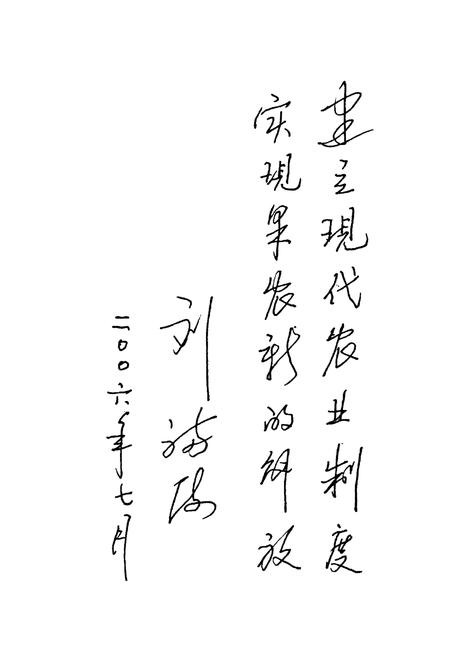 建立現代农业制度
实現果农新的解放
刘
二〇〇六年七月